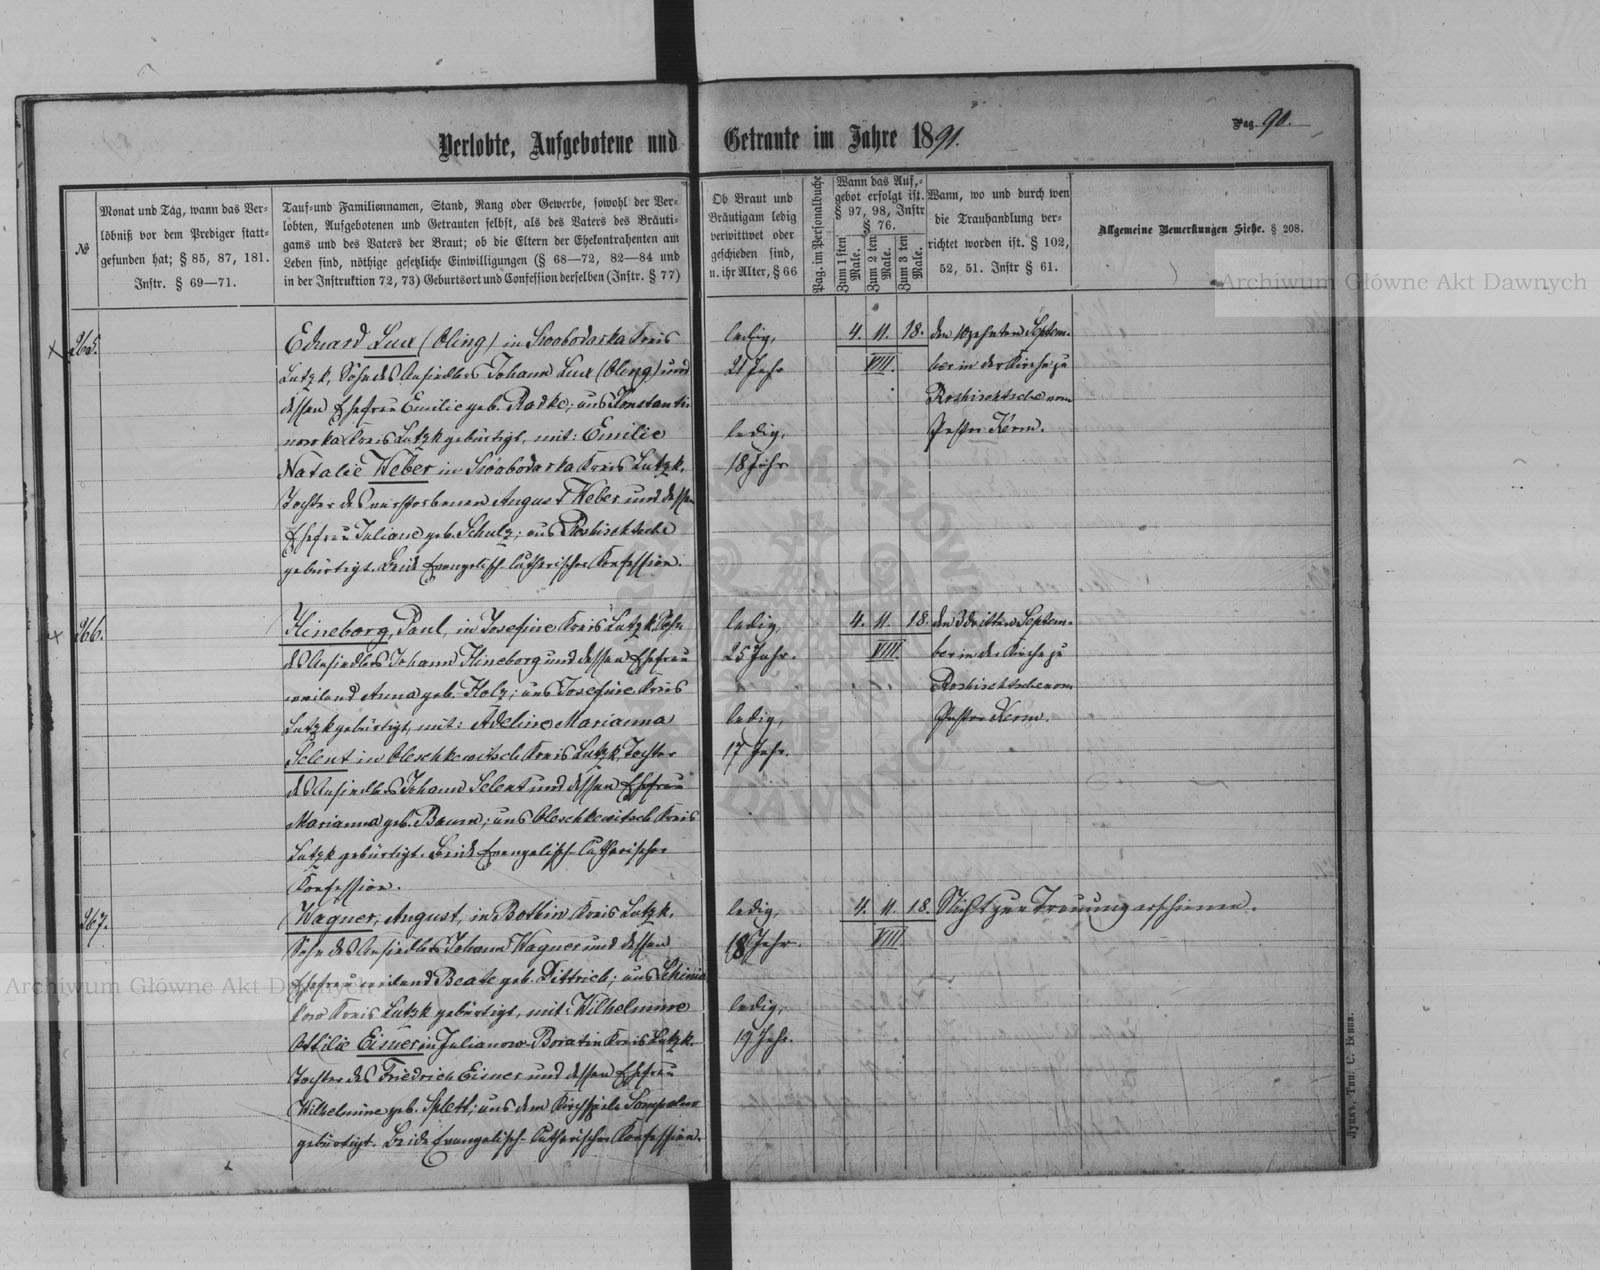 Verlobte, Aufgebotene und Getraute im Jahre 1891.
Pag. 90.
№
Monat und Tag, wann das Ver-
löbniß vor dem Prediger statt-
gefunden hat; § 85, 87, 181.
Instr. § 69—71.
Tauf-und Familiennamen, Stand, Rang oder Gewerbe, sowohl der Ver-
lobten, Aufgebotenen und Getrauten selbst, als des Vaters des Bräuti-
gams und des Vaters der Braut; ob die Eltern der Ehekontrahenten am
Leben sind, nöthige gesetzliche Einwilligungen (§ 68—72, 82—84 und
in der Instruktion 72, 73) Geburtsort und Confession derselben (Instr. § 77)
Ob Braut und
Bräutigam ledig
verwittwet oder
geschieden sind,
u. ihr Alter, § 66
Pag. im Personalbuche
Wann das Auf-
gebot erfolgt ist.
§ 97, 98, Instr
§ 76.
Zum 1sten Male.
Zum 2 ten Male.
Zum 3 ten Male.
Wann, wo und durch wen
die Trauhandlung ver-
richtet worden ist. § 102,
52, 51. Instr § 61.
Allgemeine Bemerkungen Siehe. § 208.
Archiwum Główne Akt Dawnych
x 265.
Eduard Lux (Oling) in Swobodarka Kreis
Lutzk, Sohn des Ansiedlers Johann Lux (Oling) und
dessen Ehefrau Emilie geb. Radke; aus Konstanti-
nowka Kreis Lutzk gebürtigt, mit: Emilie
Natalie Weber in Swobodarka Kreis Lutzk,
Tochter des verstorbenen August Weber und dessen
Ehefrau Juliane geb. Schulz; aus Roshischtsche
gebürtigt. Beide Evangelisch-Lutherischer Konfession.
ledig,
21 Jahr
ledig,
18 Jahr
4. 11. 18.
VIII.
den 10zehnten Septem-
ber in der Kirche zu
Roshischtsche vom
Pastor Kerm.
x 266.
Hineborg, Paul, in Josefine Kreis Lutzk, Sohn
des Ansiedlers Johann Hineborg und dessen Ehefrau
weiland Anna geb. Holz; aus Josefine Kreis
Lutzk gebürtigt, mit: Adeline Marianna
Selent in Oleschkewitsch Kreis Lutzk, Tochter
des Ansiedlers Johann Selent und dessen Ehefrau
Marianna geb. Baum; aus Oleschkewitsch Kreis
Lutzk gebürtigt. Beide Evangelisch-Lutherischer
Konfession.
ledig,
25 Jahr.
ledig,
17 Jahr.
4. 11. 18.
VIII.
den 3dritten Septem-
ber in der Kirche zu
Roshischtsche vom
Pastor Kerm.
267.
Wagner, August, in Bottin Kreis Lutzk,
Sohn des Ansiedlers Johann Wagner und dessen
Ehefrau weiland Beate geb. Dittrich; aus
Kreis Lutzk gebürtigt, mit: Wilhelmine
Ottilie Eisner in Julianow-Boratin Kreis Lutzk,
Tochter des Friedrich Eisner und dessen Ehefrau
Wilhelmine geb. Splett; aus dem Kirchspiele Sompolno
gebürtigt. Beide Evangelisch-Lutherischer Konfession.
ledig,
18 Jahr.
ledig,
19 Jahr.
4. 11. 18.
VIII.
Nicht zur Trauung erschienen.
Archiwum Główne Akt Dawnych